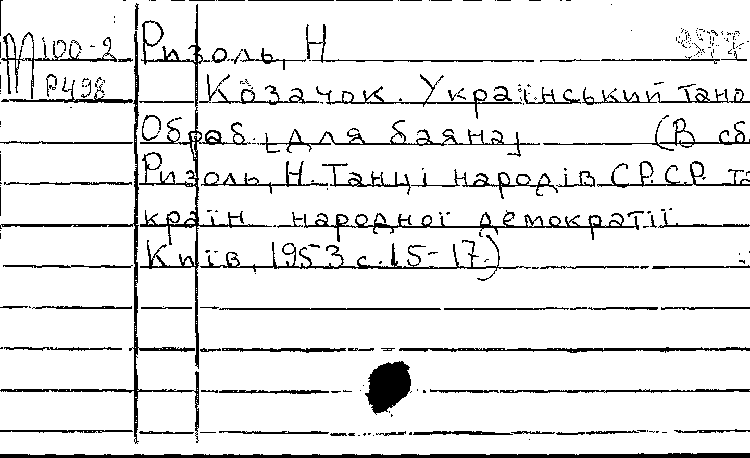 М100-2
Р498
Ризоль, Н
Козачок. Український тано
Обраб. [для баяна] (В сб.
Ризоль, Н. Танці народів С.Р.С.Р. та
країн народної демократії.
Київ, 1953 с. 15-17.)